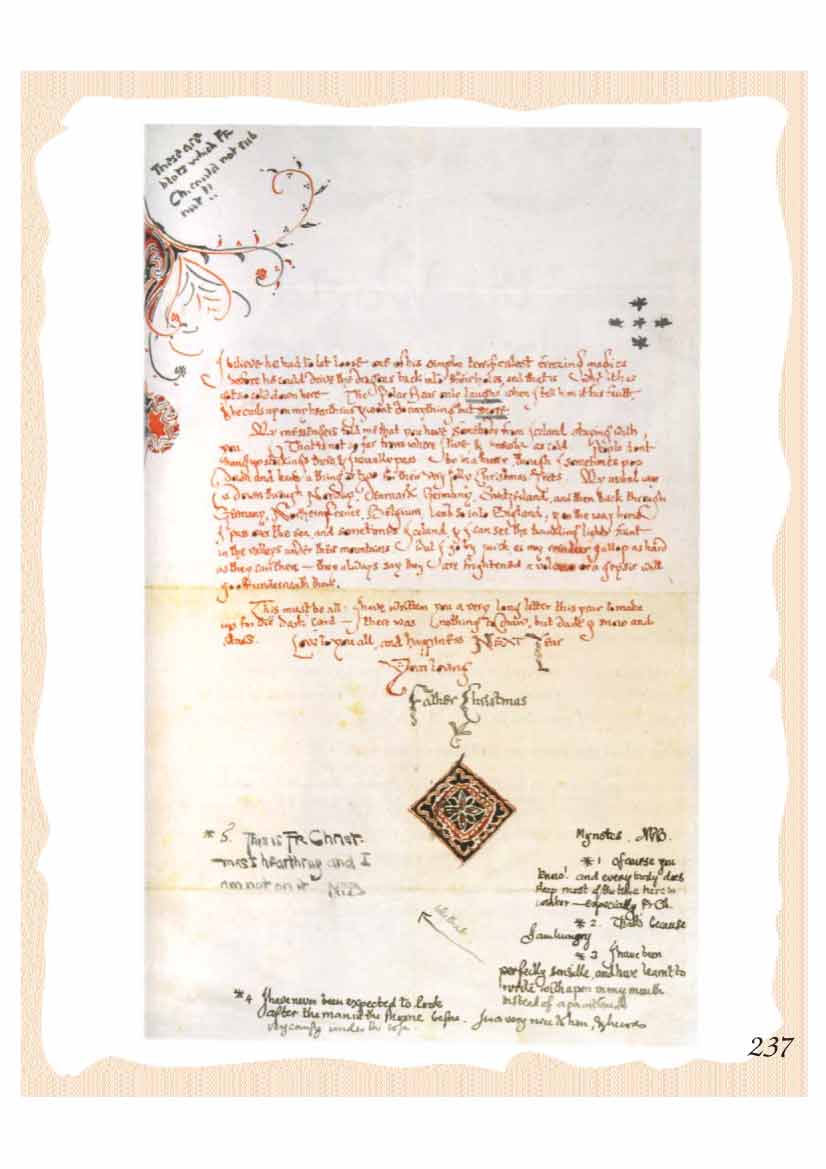 These are
blots which Fr
Ch. could not rub
out!!
I believe he had to let loose one of his simple terrificalest freezing magics
before he could drive the dragons back into their holes, and that is why it has
got so cold down here. The Polar Bear only laughs when I tell him it his fault
he curls up on my hearthrug & won't do anything but snore.
My messengers told me that you have somebody from Iceland staying with
you. That is not so far from where I live & nearly as cold. People don't
hang up stockings there & I usually pass by in a hurry, though I sometimes pop
down and leave a thing or two for their very jolly Christmas Trees. My usual way
is down through Norway, Denmark, Germany, Switzerland, and then back through
Germany, Northern France, Belgium, and so into England, & on the way home
I pass over the sea, and sometimes Iceland & I can see the twinkling lights faint
in the valleys under their mountains. But I go by quick as my reindeer gallop as hard
as they can there — they always say they are frightened a volcano or a geysir will
go off underneath them.
This must be all: I have written you a very long letter this year to make
up for the dark card — there was nothing to draw, but dark & snow and
stars. Love to you all, and happiness NEXT Year
Your loving
Father Christmas
* 5. This is FR. Christ-
mas's hearthrug and I
am not on it NPB
My notes. NPB.
* 1 Of course you
know! and everybody does
sleep most of the time here in
winter — especially Fr Ch.
* 2. That's because
I am hungry
* 3 I have been
perfectly sensible, and have learnt to
write with a pen in my mouth
instead of a paintbrush
* 4 I have never been expected to look
after the man in the Moone before. I was very nice to him, & he was
very comfy under the sofa
237